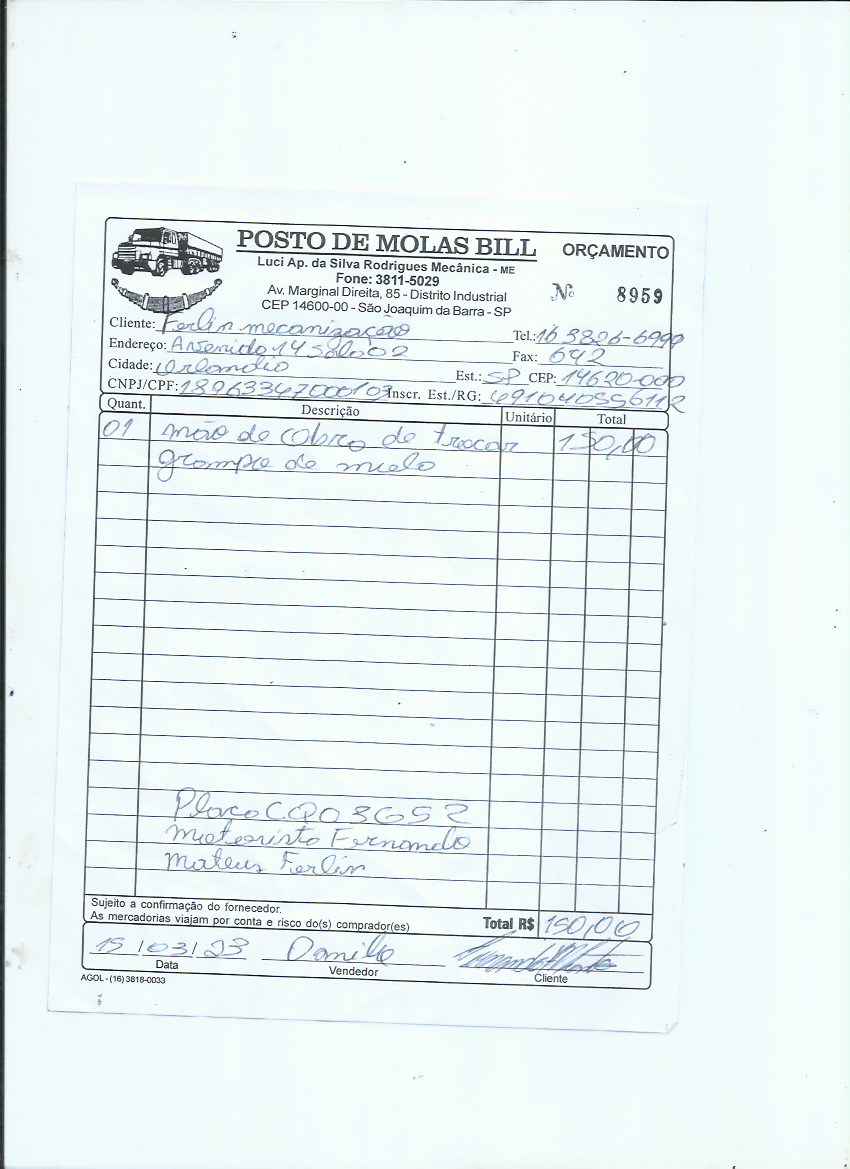 POSTO DE MOLAS BILL
ORÇAMENTO
Luci Ap. da Silva Rodrigues Mecânica - ME
Fone: 3811-5029
Av. Marginal Direita, 85 - Distrito Industrial
CEP 14600-00 - São Joaquim da Barra - SP
Nº 8959
Cliente: Ferlin mecanização Tel.: 16 3826-6999
Endereço: Avenida 14 Sala 02 Fax: 642
Cidade: Orlandia Est.: SP CEP: 14620-000
CNPJ/CPF: 18963347000103 Inscr. Est./RG: 491040556112
Quant. Descrição Unitário Total
01 mão de obra de trocar 150,00
grampo de
Placa CQ03652
Fernando
Mateus Ferlin
Sujeito a confirmação do fornecedor.
As mercadorias viajam por conta e risco do(s) comprador(es)
Total R$ 150,00
15/03/23 Danilo
Data Vendedor Cliente
AGOL - (16) 3818-0033